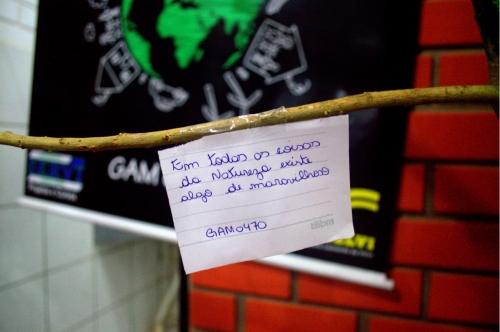 Em todas as coisas
da Natureza existe
algo de maravilhoso
GAMO470
tilibra
GAM